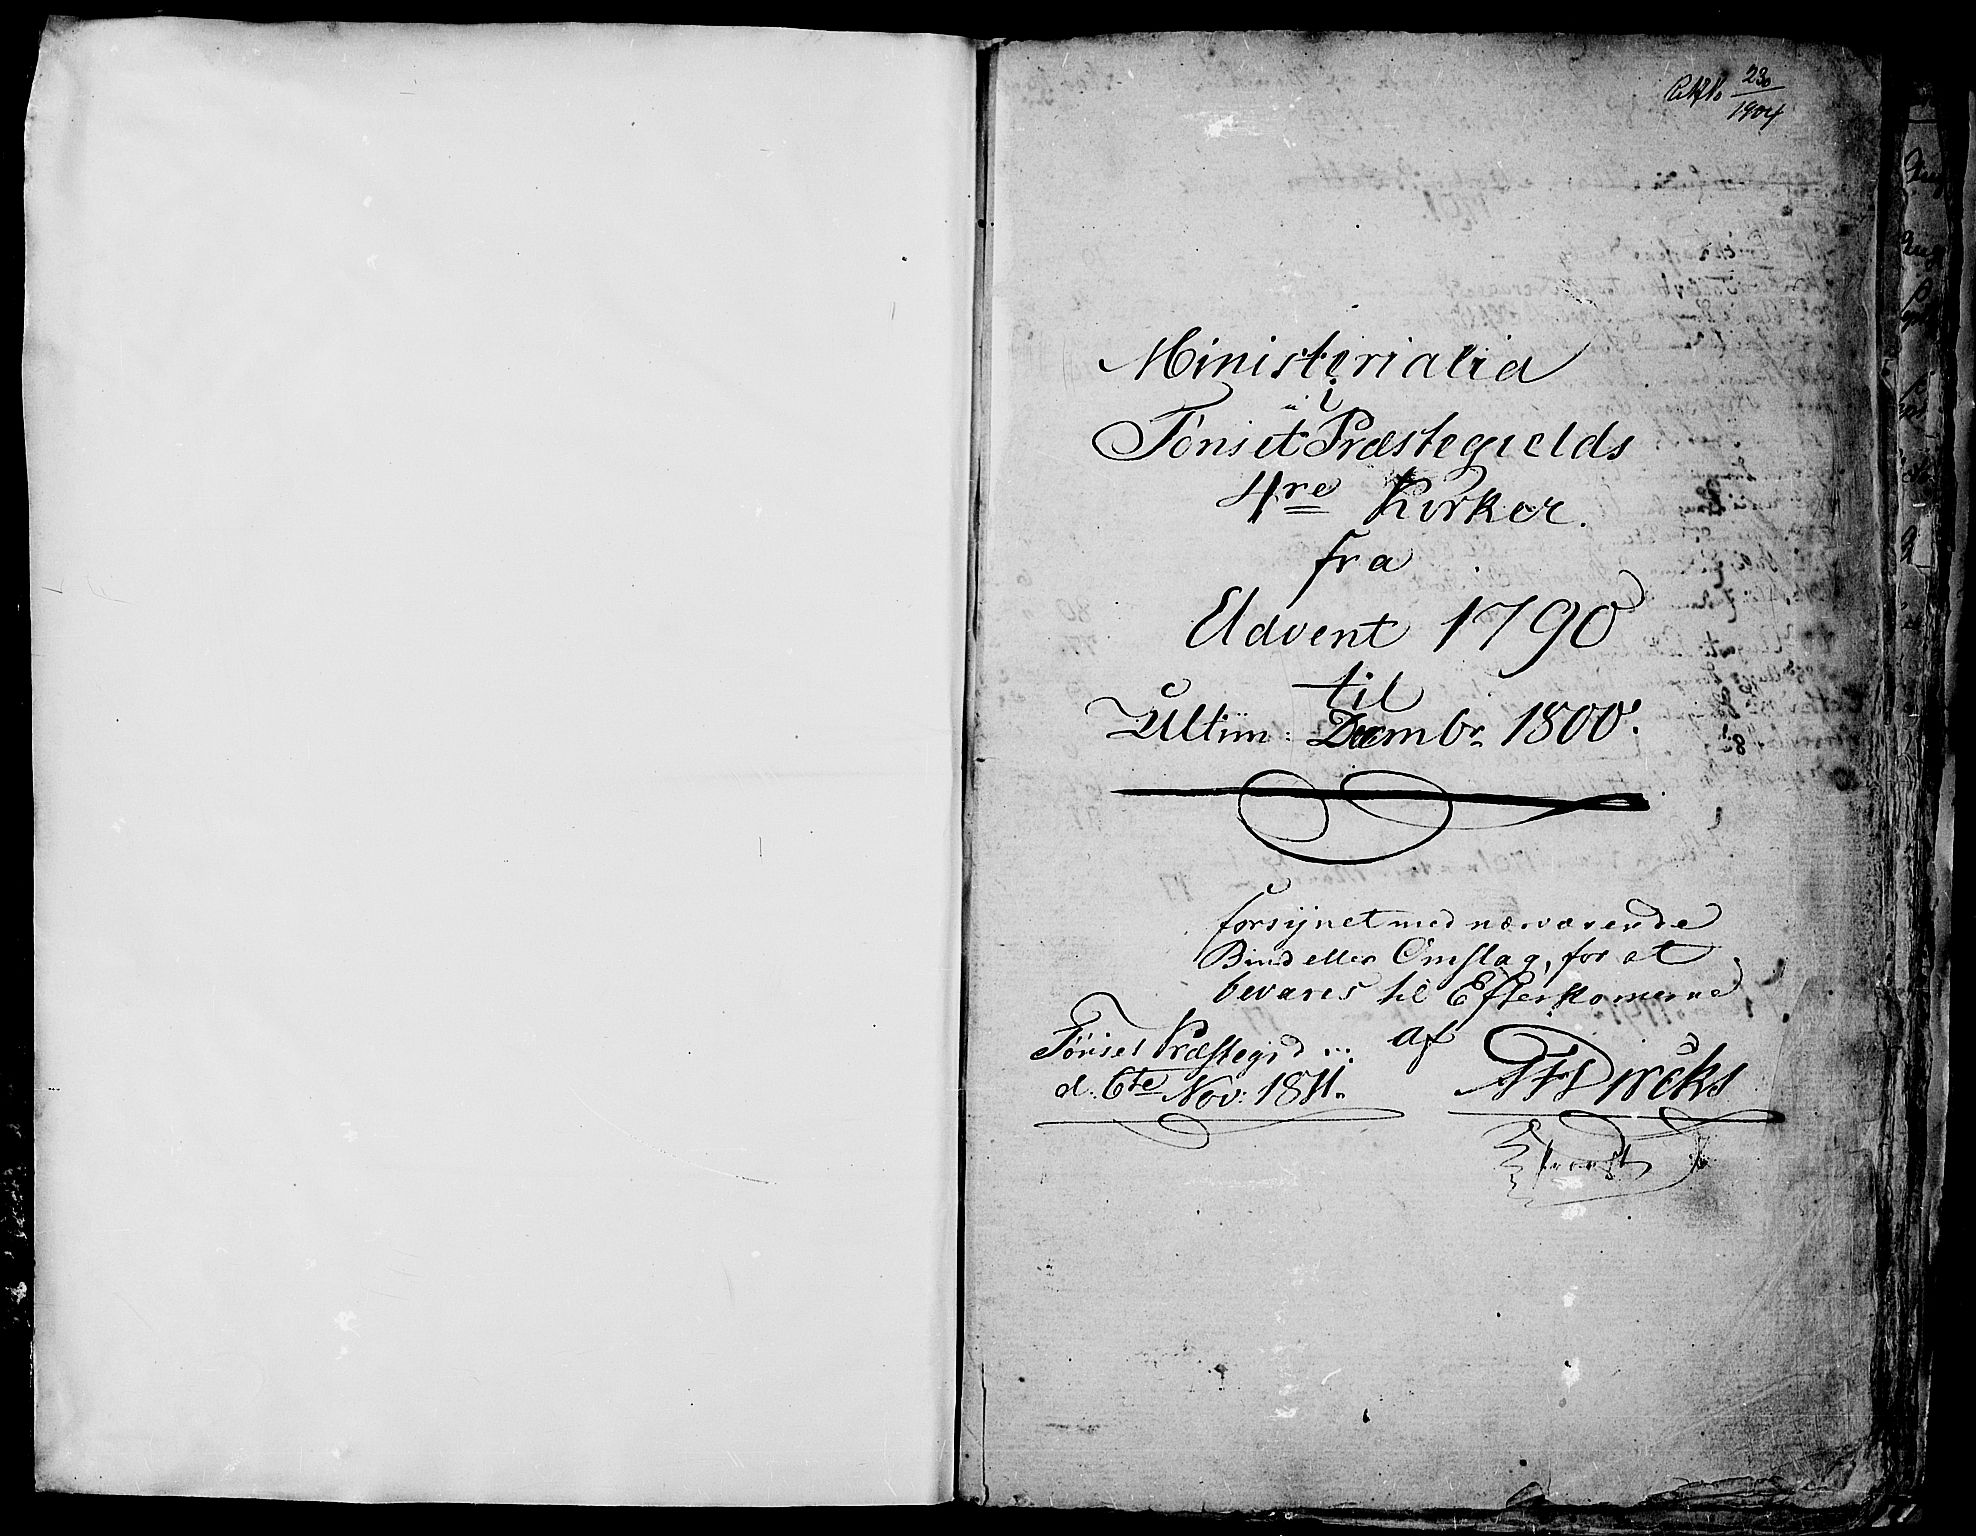 23
1904
Ministerialia
i
Tönset Præstegields
4re Kirker.
fra
Advent 1790
til
Ultim: Decembr. 1800.
forsynet med nærværende
Bind eller Omslag, for at
bevares til Efterkomerne
af
Tönset Præstegrd
d. 6te Nov: 1811.
Dircks
Provst